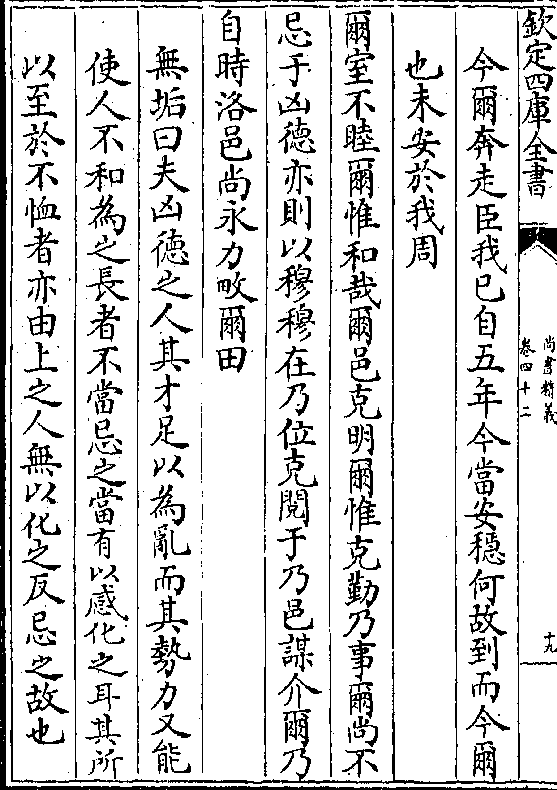 欽定四庫全書
尚書精義
卷四十二
十九
今爾奔走臣我已自五年今當安穩何故到而今爾
也未安於我周
爾室不睦爾惟和哉爾邑克明爾惟克勤乃事爾尚不
忌于凶德亦則以穆穆在乃位克閱于乃邑謀介爾乃
自時洛邑尚永力畋爾田
無垢曰夫凶德之人其才足以為亂而其勢力又能
使人不和為之長者不當忌之當有以感化之耳其所
以至於不恤者亦由上之人無以化之反忌之故也